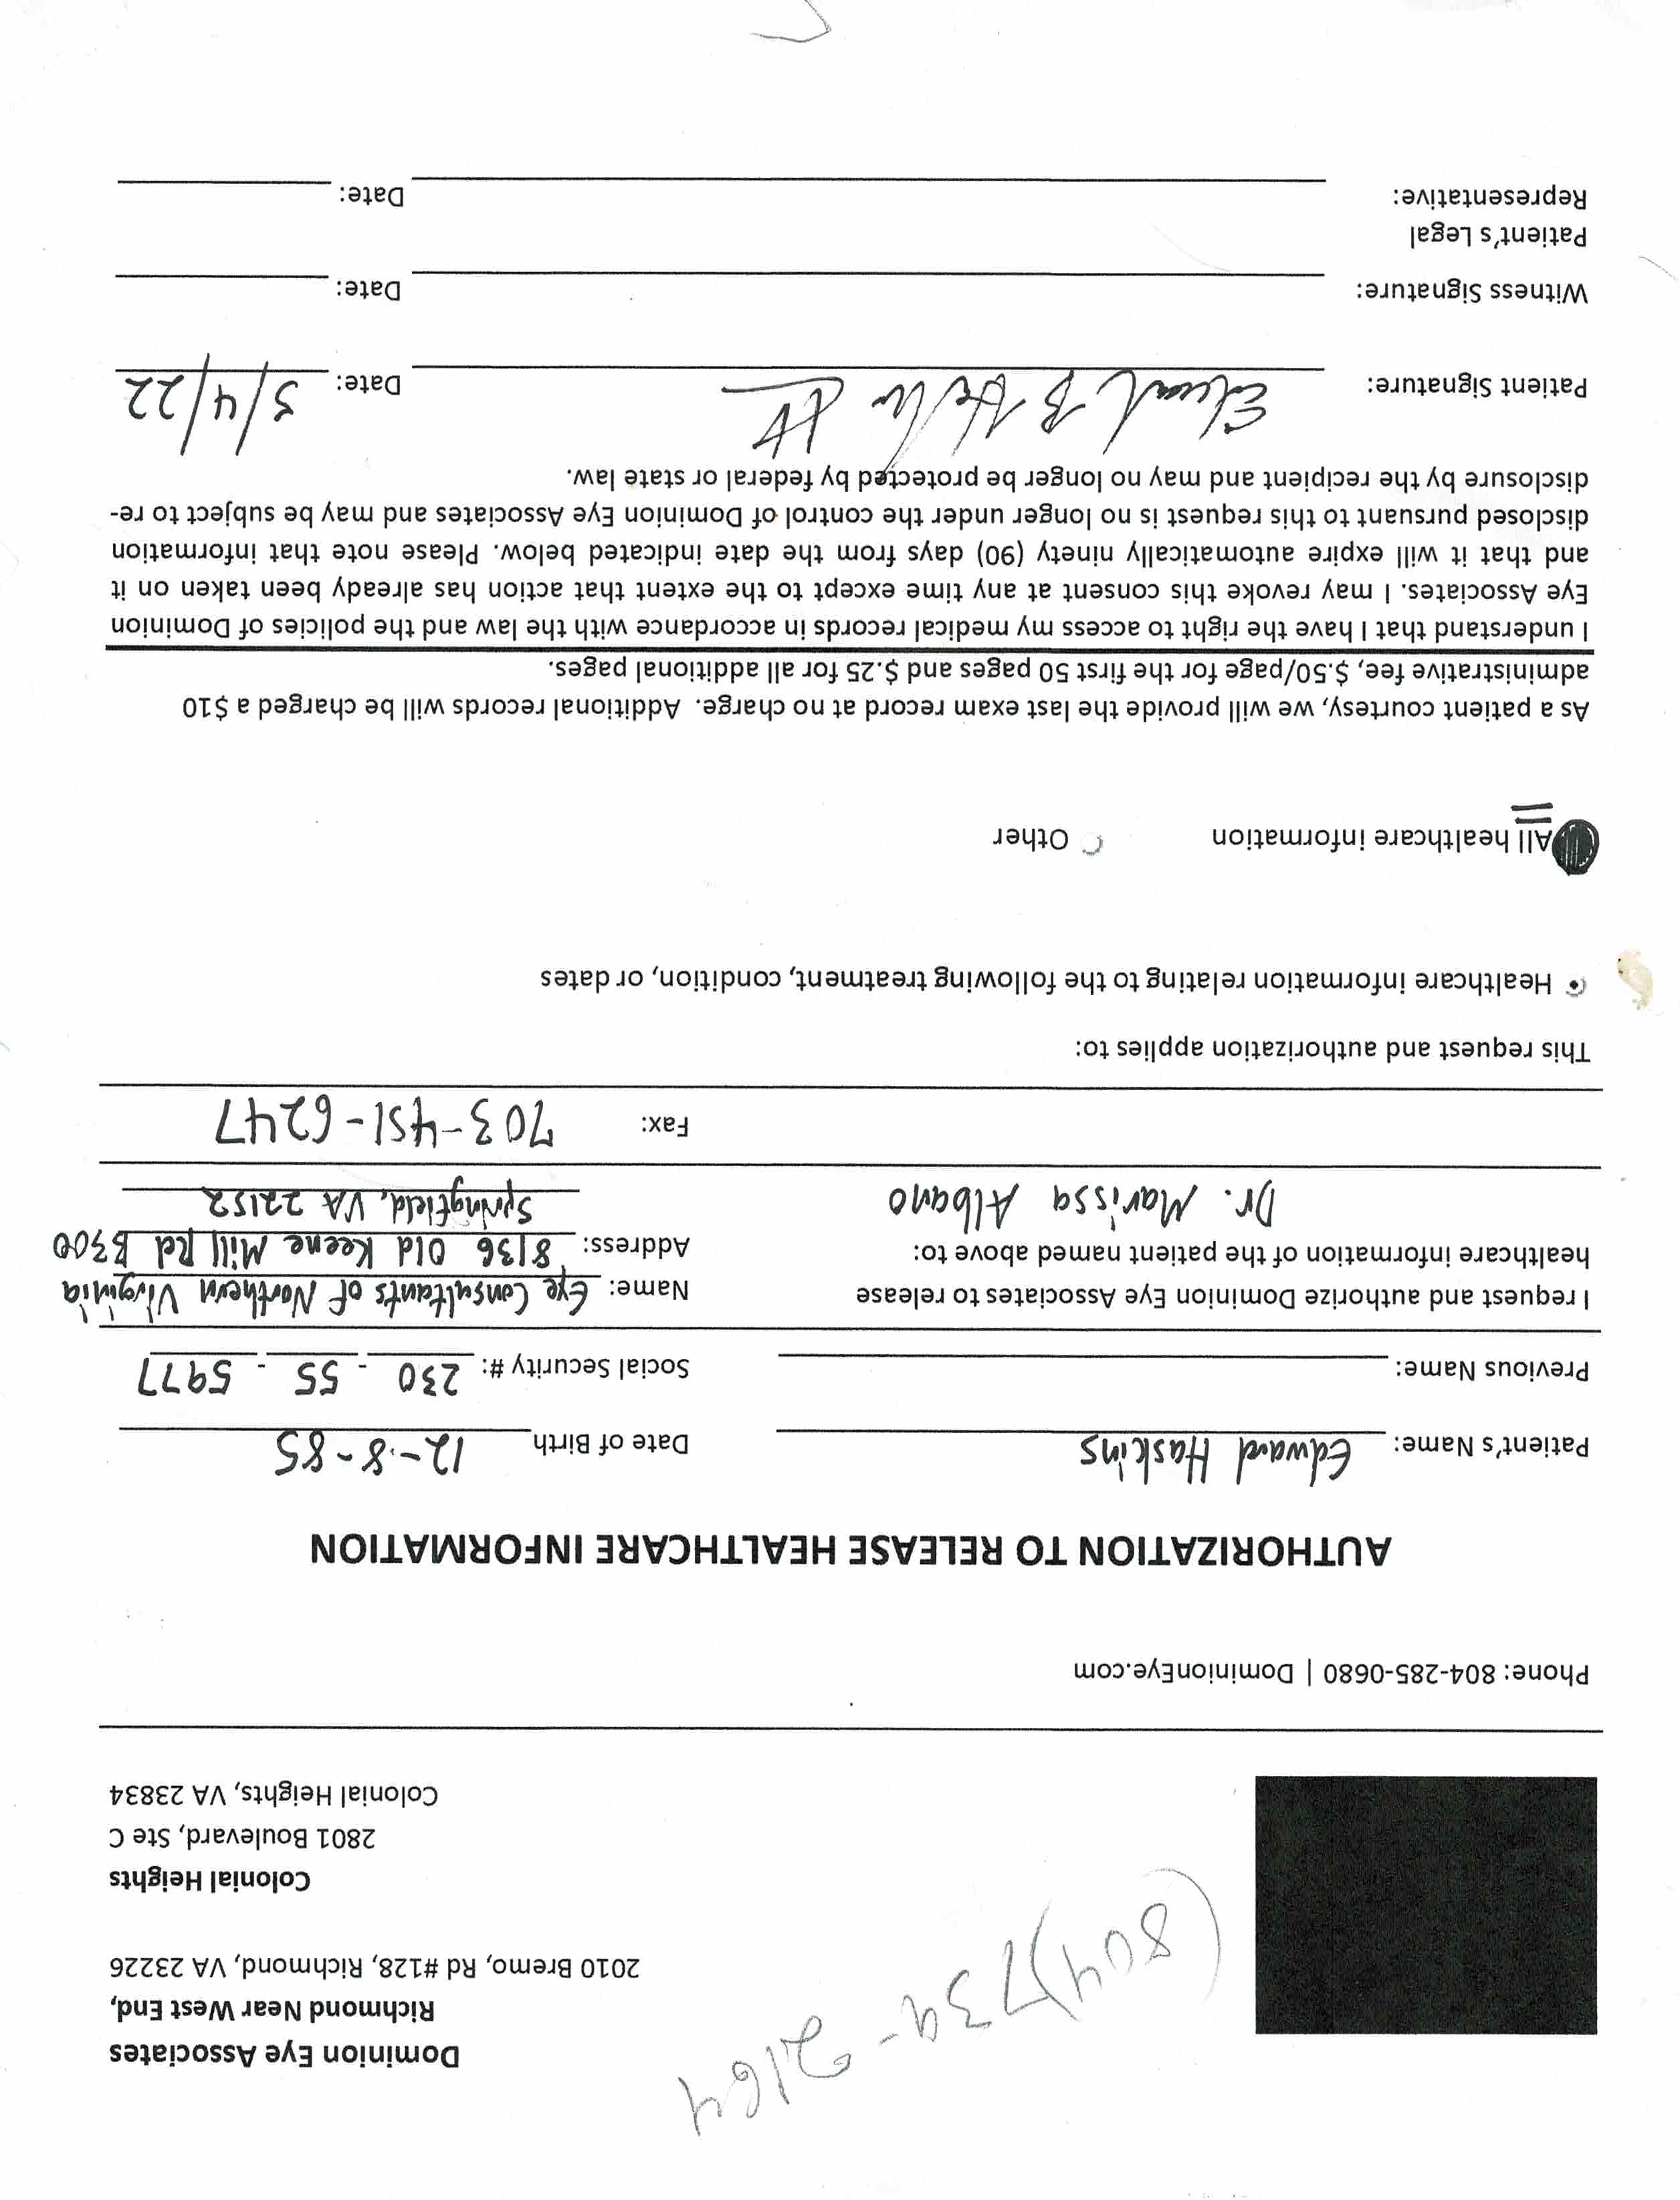 Dominion Eye Associates
Richmond Near West End,
2010 Bremo, Rd #128, Richmond, VA 23226
(804)739-2164
Colonial Heights
2801 Boulevard, Ste C
Colonial Heights, VA 23834
Phone: 804-285-0680 | DominionEye.com
AUTHORIZATION TO RELEASE HEALTHCARE INFORMATION
Patient's Name: Edward Haskins Date of Birth 12-8-85
Previous Name: Social Security #: 230 - 55 - 5977
I request and authorize Dominion Eye Associates to release Name: Eye Consultants of Northern Virginia
healthcare information of the patient named above to: Address: 8136 Old Keene Mill Rd B300
Dr. Marissa Albano Springfield, VA 22152
Fax: 703-451-6247
This request and authorization applies to:
Healthcare information relating to the following treatment, condition, or dates
All healthcare information Other
As a patient courtesy, we will provide the last exam record at no charge. Additional records will be charged a $10
administrative fee, $.50/page for the first 50 pages and $.25 for all additional pages.
I understand that I have the right to access my medical records in accordance with the law and the policies of Dominion
Eye Associates. I may revoke this consent at any time except to the extent that action has already been taken on it
and that it will expire automatically ninety (90) days from the date indicated below. Please note that information
disclosed pursuant to this request is no longer under the control of Dominion Eye Associates and may be subject to re-
disclosure by the recipient and may no longer be protected by federal or state law.
Patient Signature: Edward B Date: 5/4/22
Witness Signature: Date:
Patient's Legal
Representative: Date: